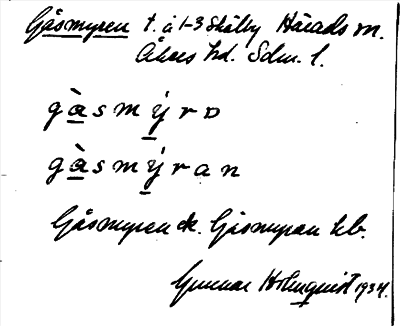 Gåsmyren t. å 1-3 Skälby Härads sn.
Åkers hd. Sdm. l.
gàsmýrɒ
gàsmýran
Gåsmyren ek. Gåsmyran hb.
Gunnar Holmquist 1934.